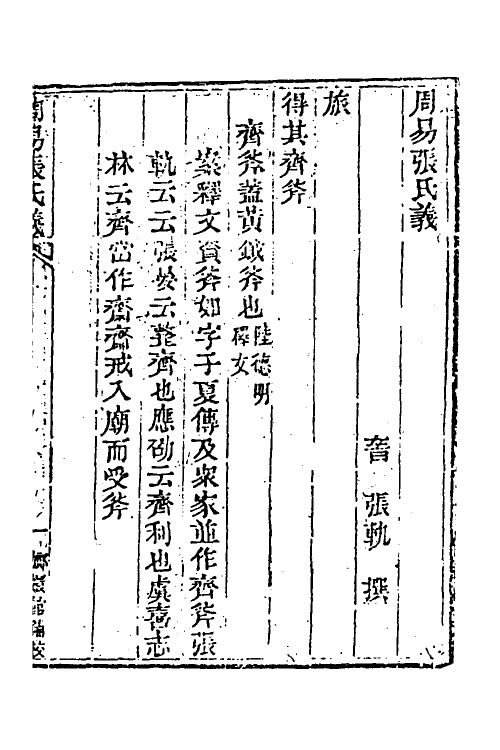 周易張氏義
晉 張軌 撰
旅
得其齊斧
齊斧蓋黃鉞斧也陸德明釋文
案釋文資斧如字子夏傳及衆家並作齊斧張
軌云云張晏云整齊也應劭云齊利也虞喜志
林云齊當作齋齋戒入廟而受斧
周易張氏義
一